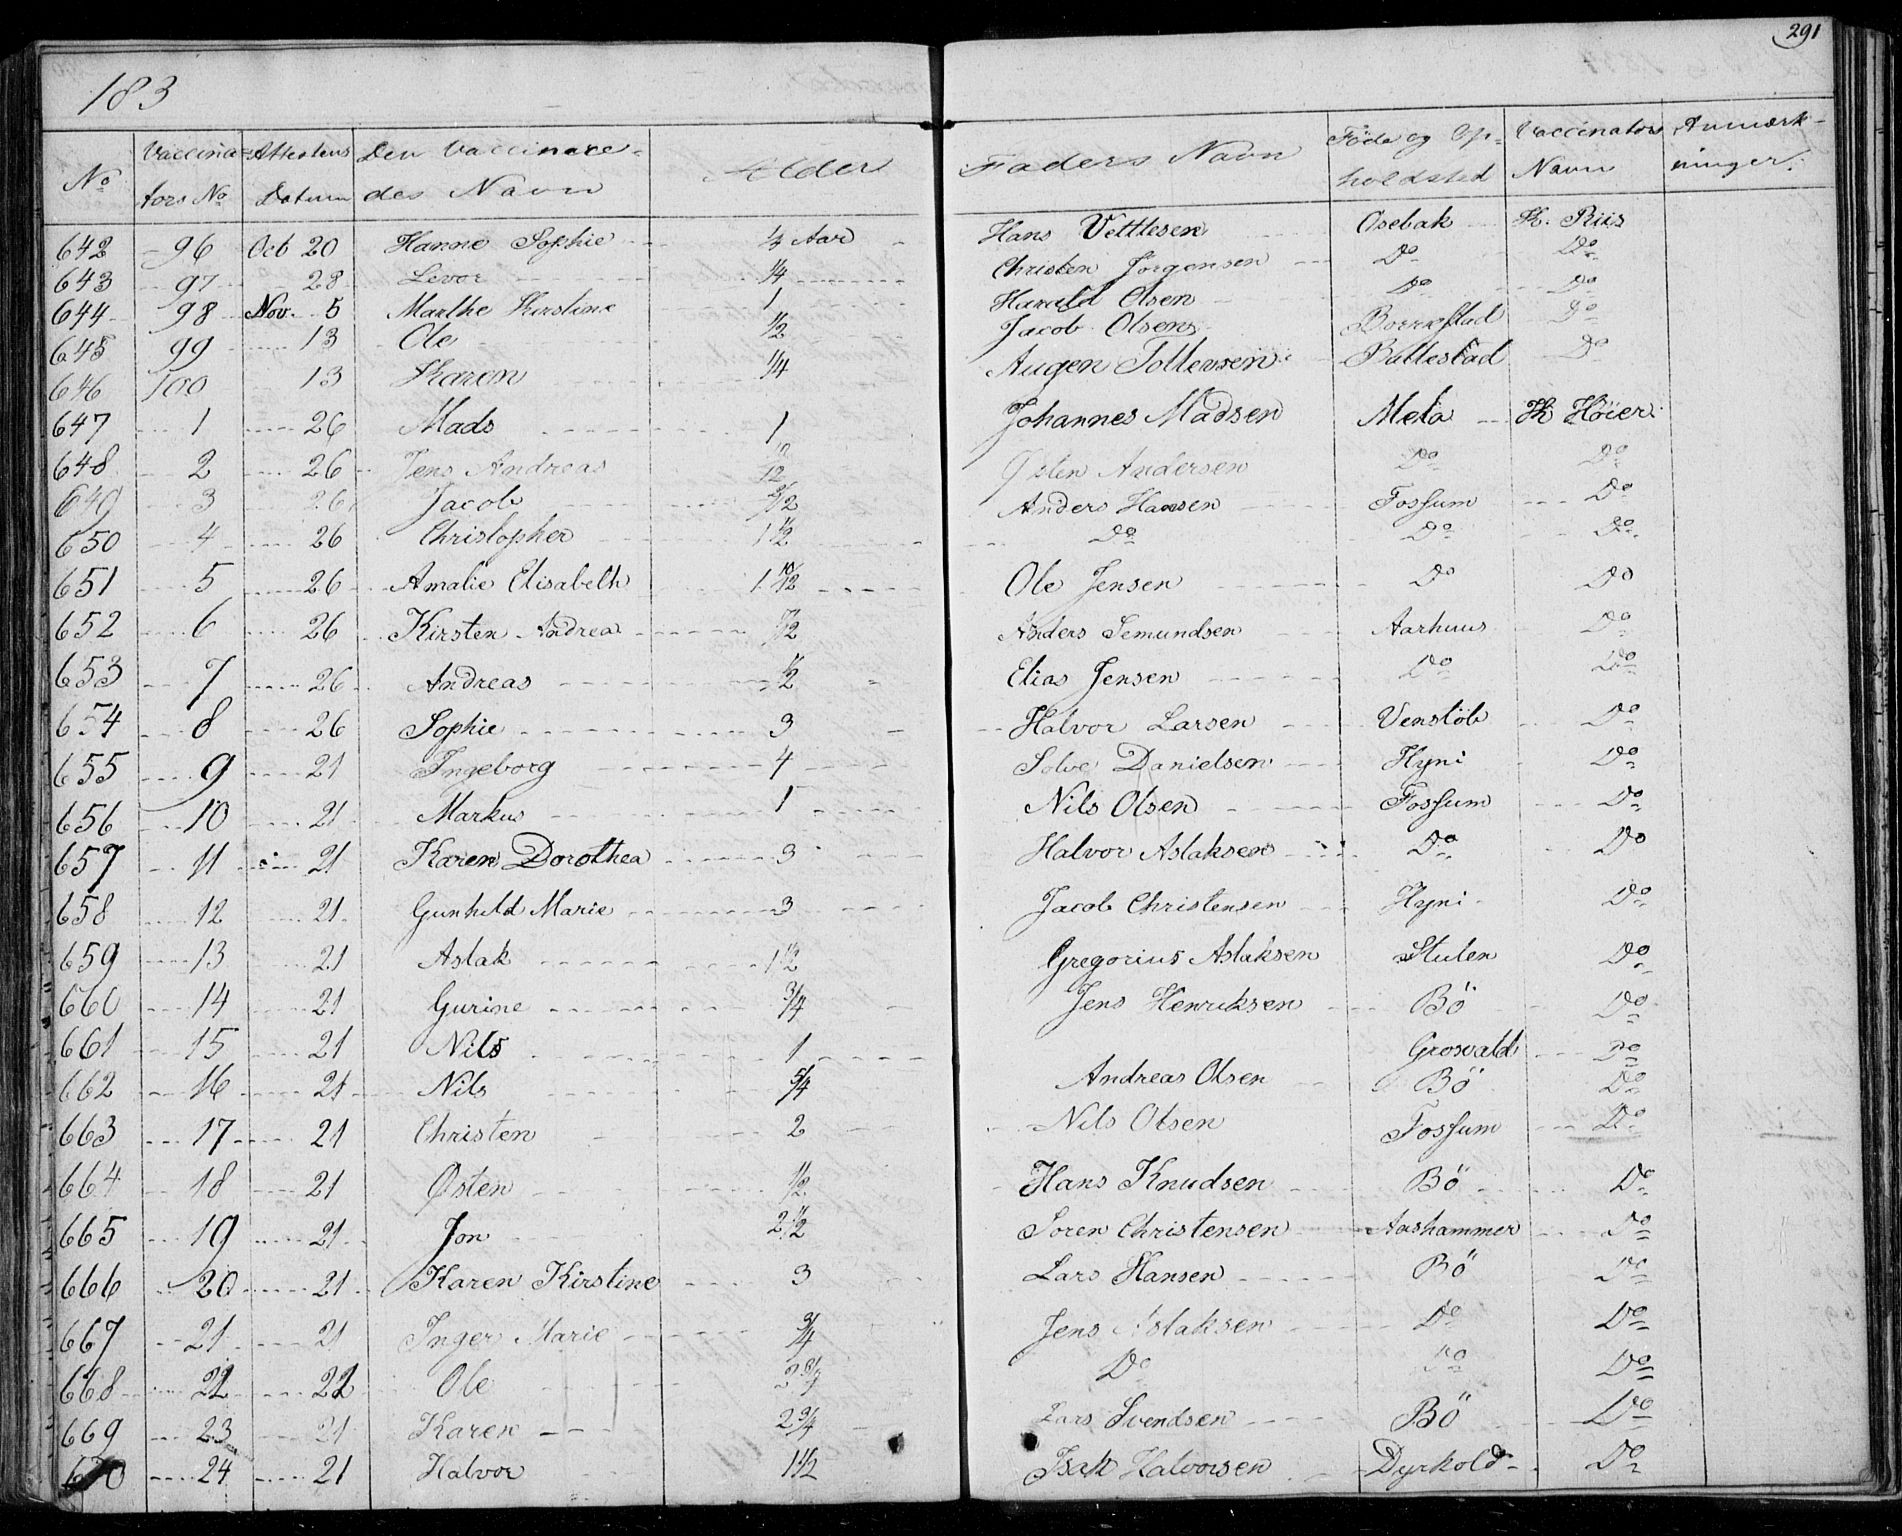 291
183
No Vaccina- tors No Attestens Datum Den Vaccinere- des Navn Alder Faders Navn Föde og Op- holdsted Vaccinators Navn Anmærk- ninger.
642 96 Oct 20 Hanne Sophie 1/3 Aar Hans Vettlesen Osebak H. Riis
643 97 28 Levor 1/4 Christen Jörgensen Do Do
644 98 Nov. 5 Marthe Kirstine 1 Harald Olsen Do Do
645 99 13 Ole 1/2 Jacob Olsen Borrestad Do
646 100 13 Karen 1/4 Augen Tollevsen Ballestad Do
647 1 26 Mads 1 Johannes Madsen Mela H Höier
648 2 26 Jens Andreas Østen Andersen Do Do
649 3 26 Jacob Anders Hansen Fossum Do
650 4 26 Christopher 1 1/2 Do Do Do
651 5 26 Amalie Elisabeth 1 10/12 Ole Jensen Do Do
652 6 26 Kirsten Andrea 7/12 Anders Semundsen Aarhuus Do
653 7 26 Andreas 1/2 Elias Jensen Do Do
654 8 26 Sophie 3 Halvor Larsen Venslöb Do
655 9 21 Ingeborg 4 Solve Danielsen Hyni Do
656 10 21 Markus 1 Nils Olsen Fossum Do
657 11 21 Karen Dorothea 3 Halvor Aslaksen Do Do
658 12 21 Gunhild Marie 3 Jacob Christensen Hyni Do
659 13 21 Aslak 1 1/2 Gregorius Aslaksen Stulen Do
660 14 21 Gurine 3/4 Jens Henriksen Bö Do
661 15 21 Nils 1 Grosvald Do
662 16 21 Nils 5/4 Andreas Olsen Bö Do
663 17 21 Christen 2 Nils Olsen Fossum Do
664 18 21 Østen 1/2 Hans Knudsen Bö Do
665 19 21 Jon 2 1/2 Soren Christensen Aashammer Do
666 20 21 Karen Kirstine 3 Lars Hansen Bö Do
667 21 21 Inger Marie 3/4 Jens Aslaksen Do Do
668 22 22 Ole Do Do Do
669 23 21 Karen 2 3/4 Lars Svendsen Bö Do
670 24 21 Halvor 1 1/2 Isak Halvorsen Dyrkold Do